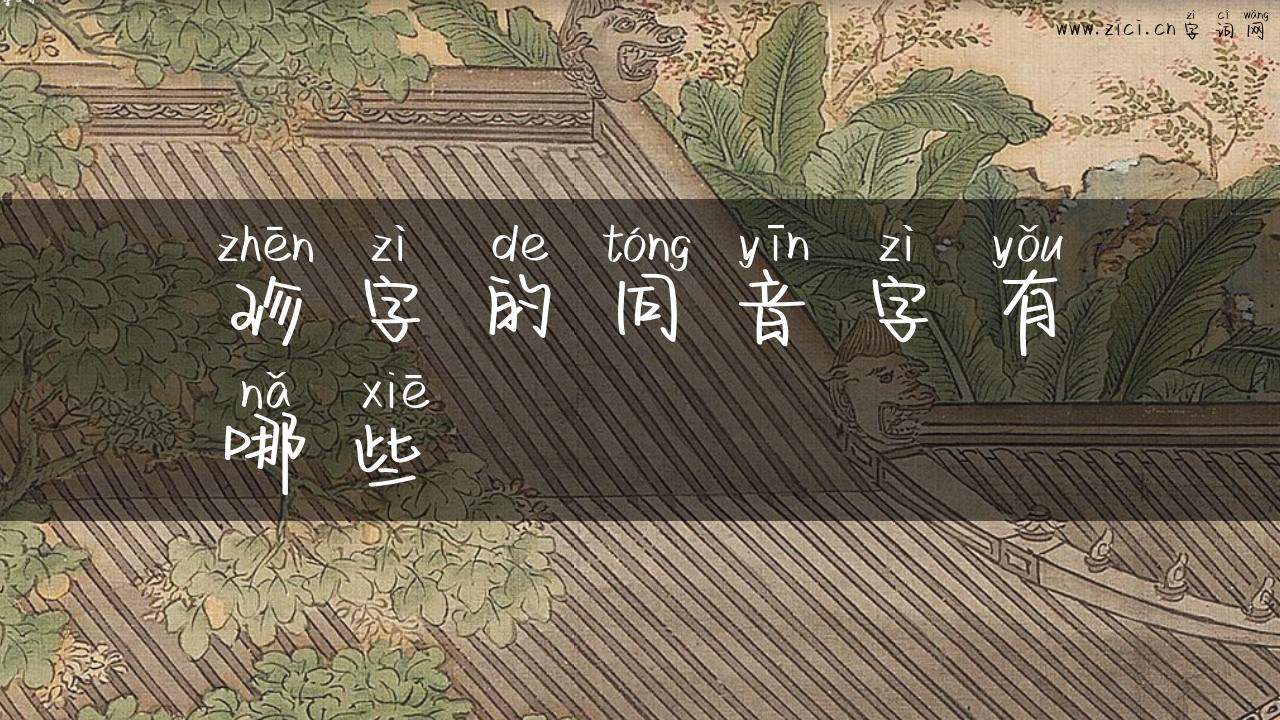 www.zici.cn zì cí wǎng
字词网
zhēn zì de tóng yīn zì yǒu
珍字的同音字有
nǎ xiē
哪些